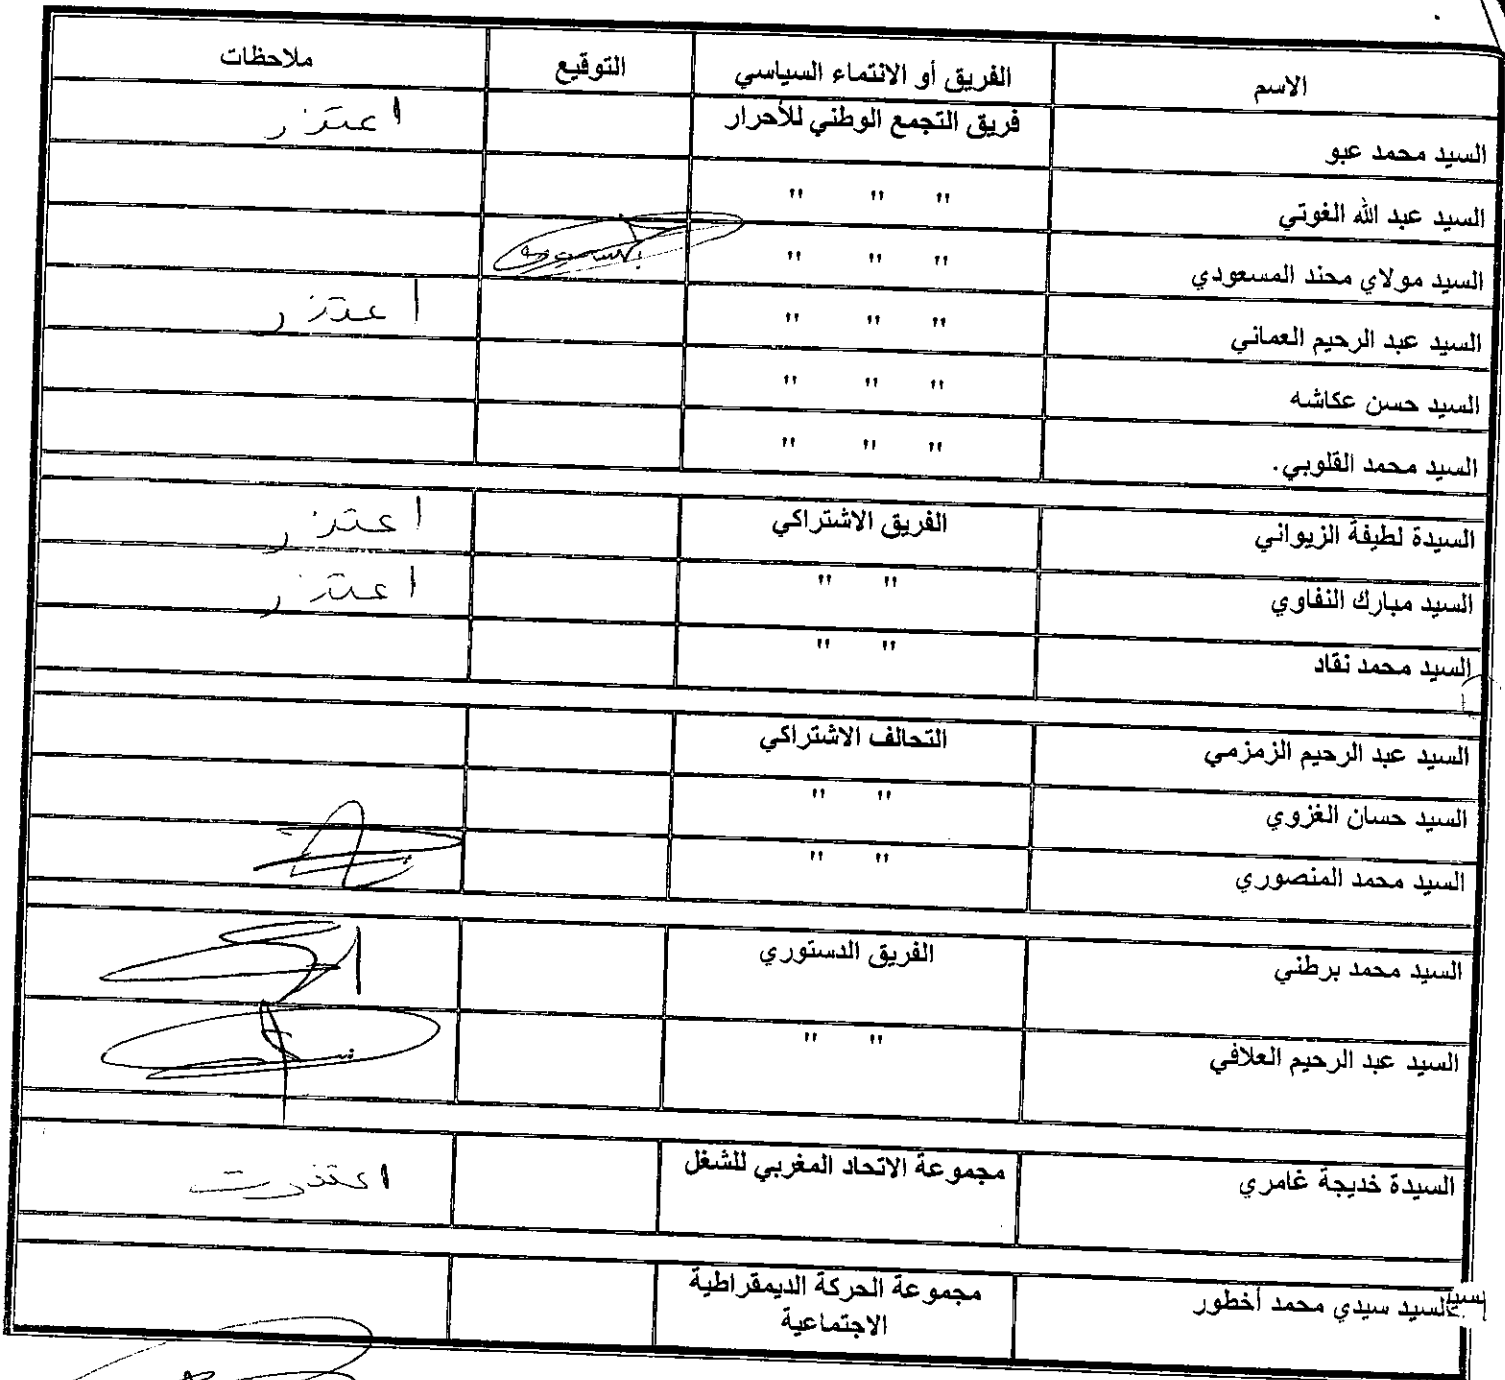 الاسم الفريق أو الانتماء السياسي التوقيع ملاحظات
السيد محمد عبو فريق التجمع الوطني للأحرار اعتذر
السيد عبد الله الغوتي " " "
السيد مولاي محند المسعودي " " "
السيد عبد الرحيم العماني " " " اعتذر
السيد حسن عكاشه " " "
السيد محمد القلوبي. " " "
السيدة لطيفة الزيواني الفريق الاشتراكي اعتذر
السيد مبارك النفاوي " " اعتذر
السيد محمد نقاد " "
السيد عبد الرحيم الزمزمي التحالف الاشتراكي
السيد حسان الغزوي " "
السيد محمد المنصوري " "
السيد محمد برطني الفريق الدستوري
السيد عبد الرحيم العلافي " "
السيدة خديجة غامري مجموعة الاتحاد المغربي للشغل اعتذرت
السيد سيدي محمد أخطور مجموعة الحركة الديمقراطية
الاجتماعية